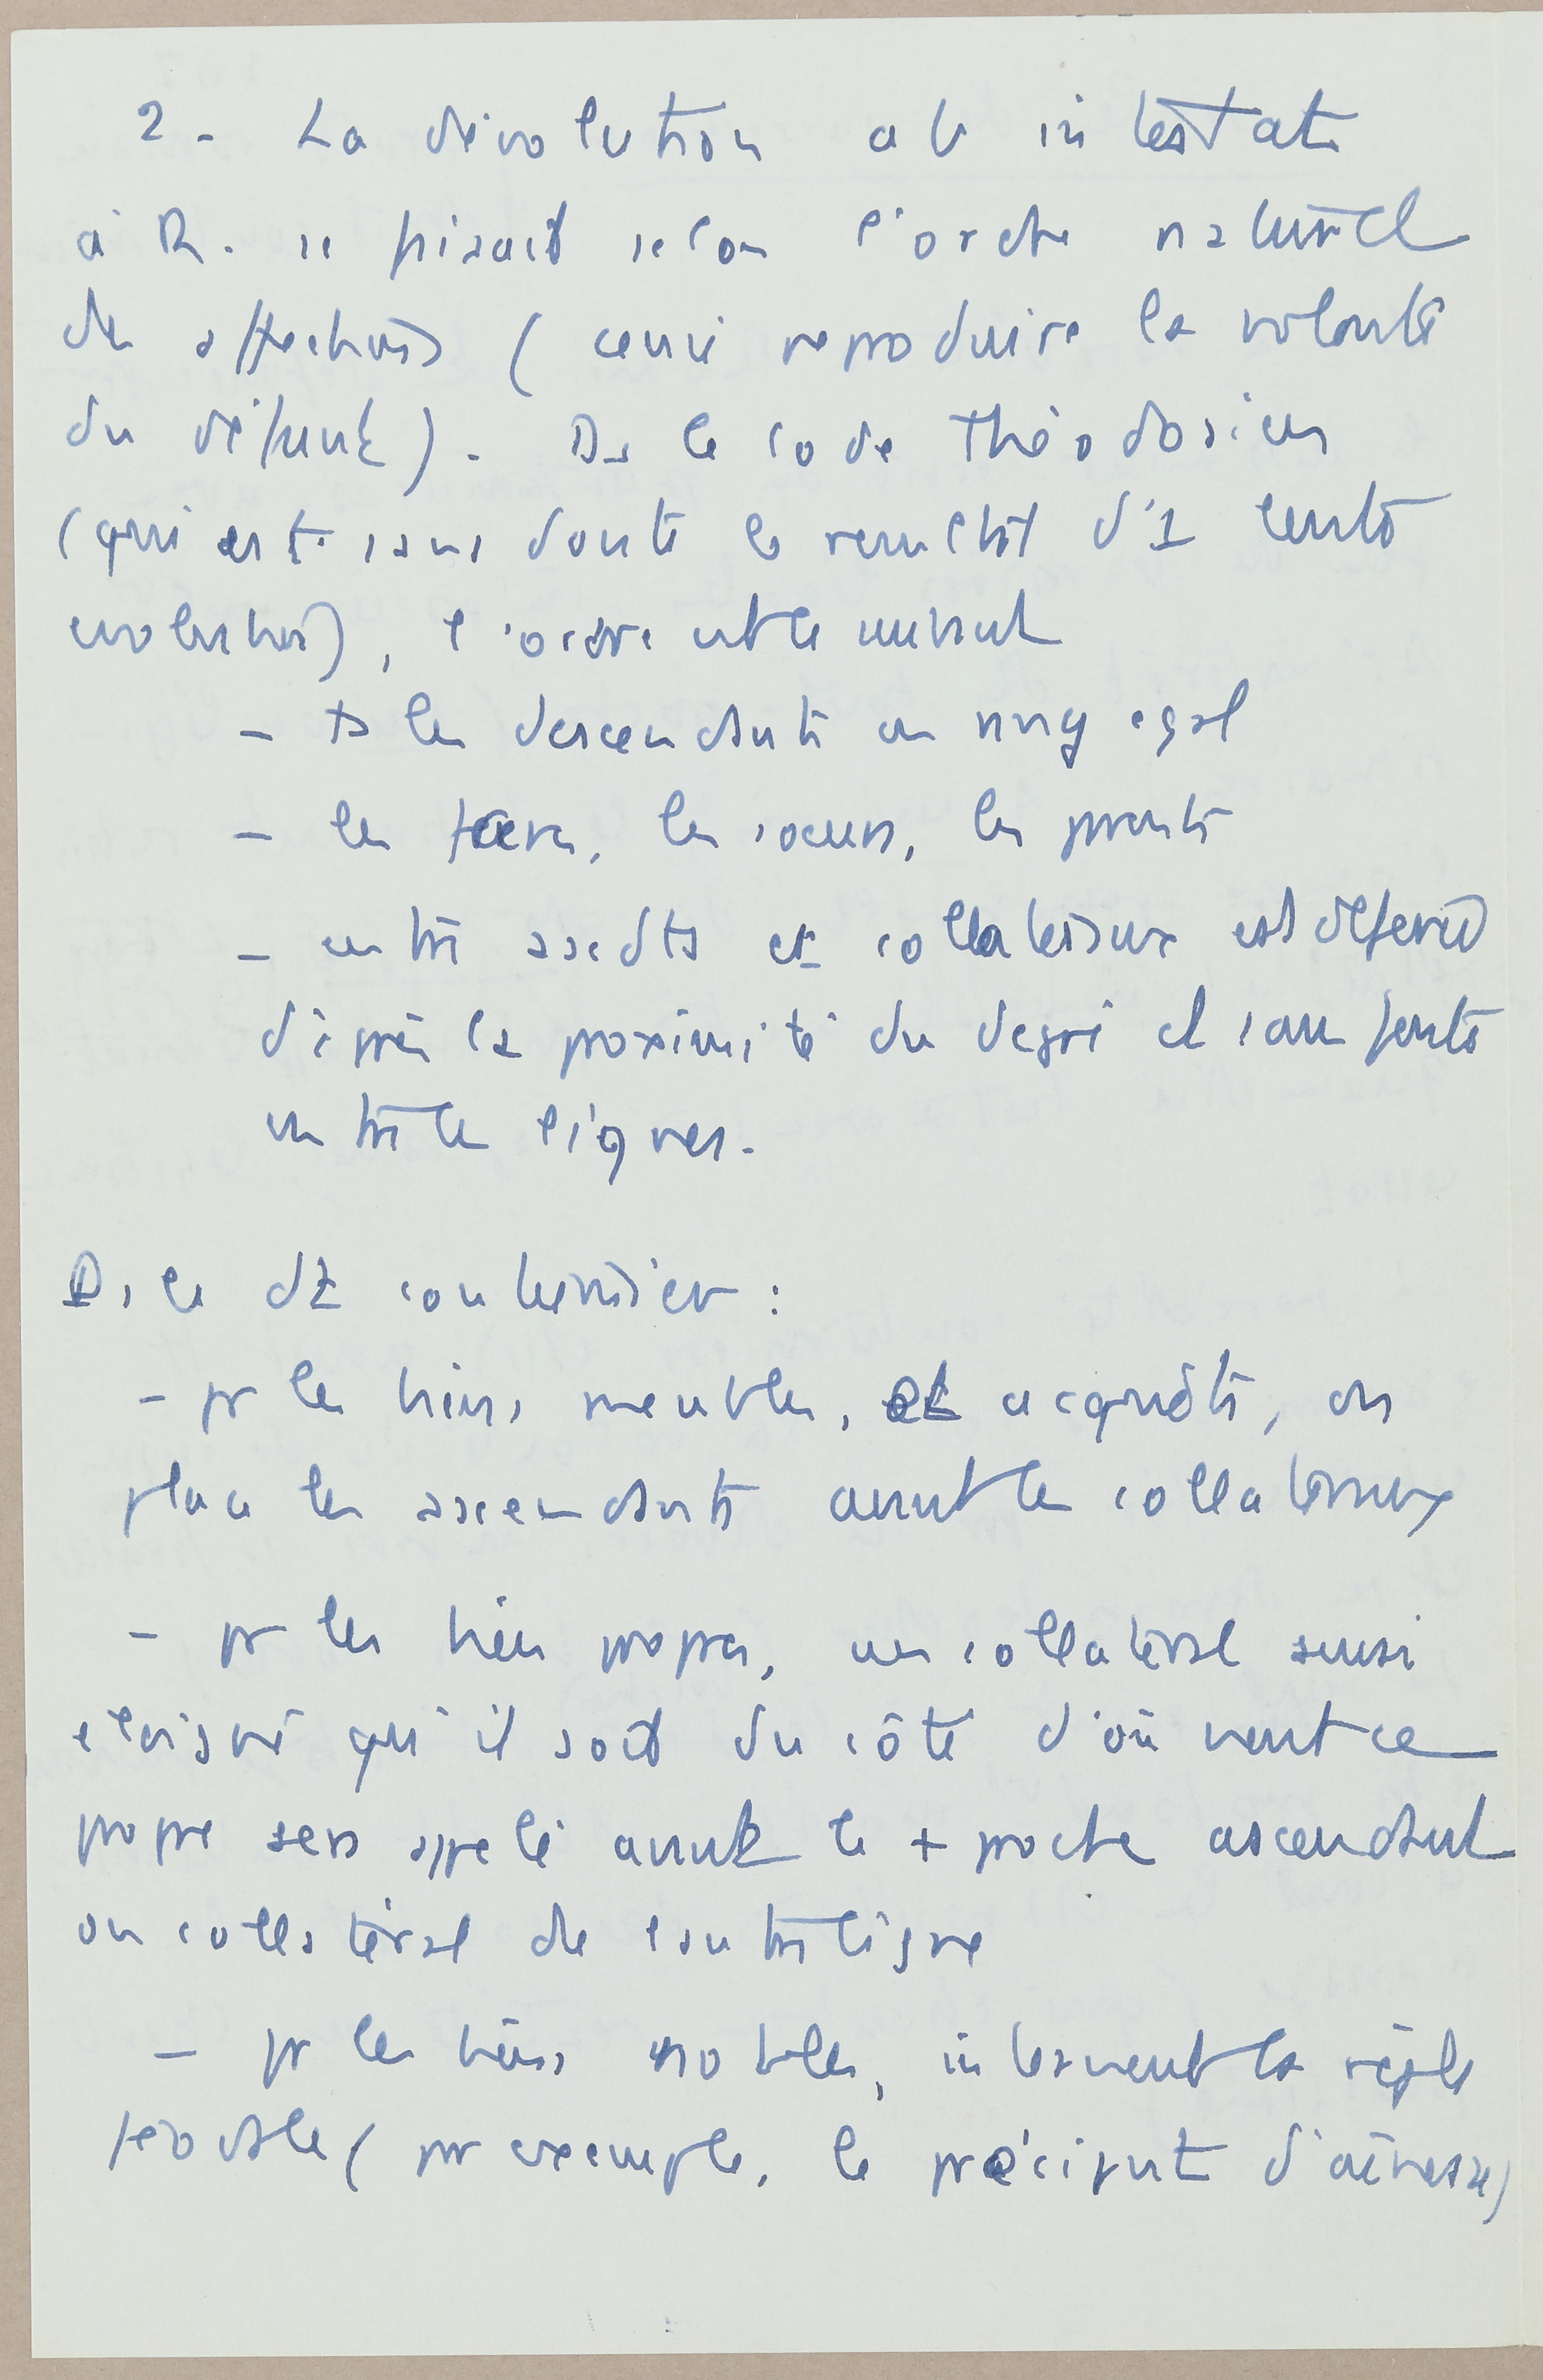 2 - La dévolution ab intestat
à R. se faisait selon l'ordre naturel
des affections (censé reproduire la volonté
du défunt). Ds le code Théodosien
(qui est sans doute le resultat d'1 lente
evolution), l'ordre est le suivant
- ts les descendants au rang egal
- les frères, les soeurs, les parents
- entre ascdts et collateraux est déferée
d'après la proximité du degré et sans fente
entre les lignes.
Ds le dt coutumier :
- pr les biens meubles, et acquêts, on
place les ascendants avant les collateraux
- pr les biens propres, un collatéral aussi
eloigné qu'il soit du côté d'où vient ce
propre sera appelé avant le + proche ascendant
ou collatéral de l'autre ligne
- pr les biens nobles, intervient la règle
féodale (par exemple, le préciput d'aînesse)